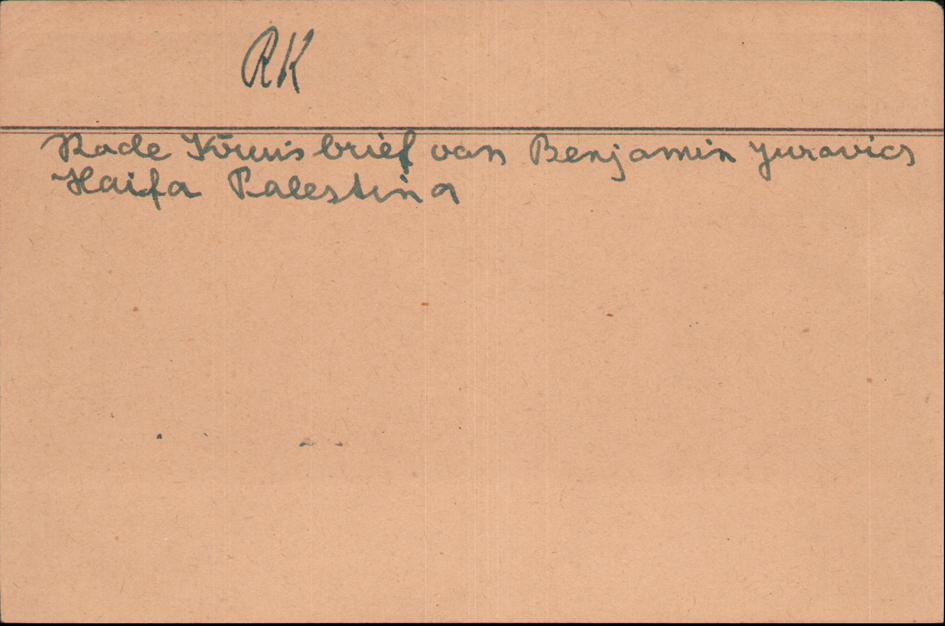 RK
Rode Kruisbrief van Benjamin Juravics
Haifa Palestina